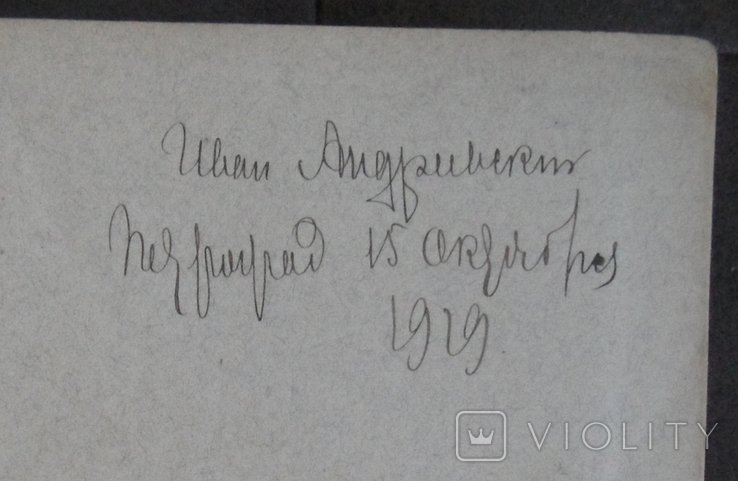 Иван Андриевский
Петроград 15 Октября
1919.
VIOLITY